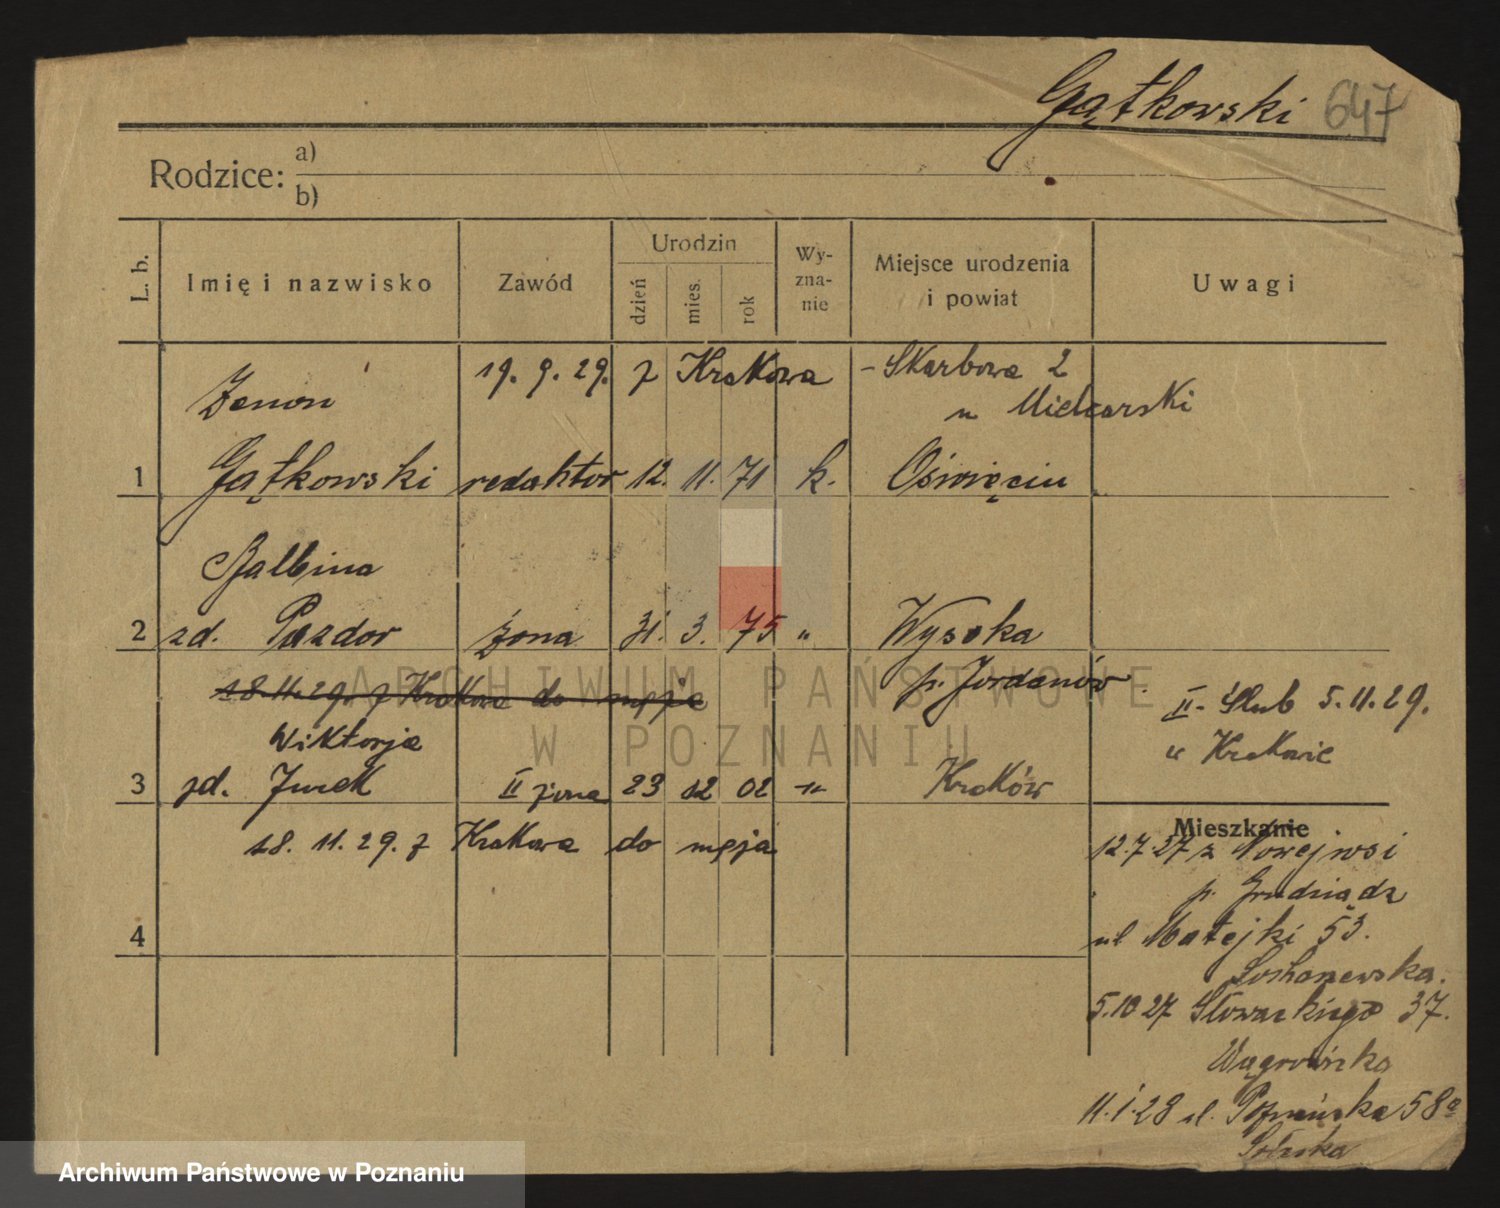 Gątkowski 647
Rodzice: a)
b)
L. b.
Imię i nazwisko
Zawód
Urodzin
dzień
mies.
rok
Wy-
zna-
nie
Miejsce urodzenia
i powiat
Uwagi
19. 9. 29. z Krakowa – Skarbowa 2
u Mielcarski
Zenon
1 Gątkowski redaktor 12. 11. 71 k. Oświęcim
Balbina
2 zd. Pazdor żona 31. 3. 75 " Wysoka
p. Jordanów
18. 11. 29. z Krakowa do męża
II. Ślub 5. 11. 29.
w Krakowie
Wiktorja
3 zd. Jurek II żona 23 12 02 -"- Kraków
18. 11. 29. z Krakowa do męża
Mieszkanie
12.7.27 z Nowejwsi
p. Grudziądz
4
ul Matejki 53.
5.10 27 Słowackiego 37.
11.1.28 ul. Poznańska 58a
ARCHIWUM PAŃSTWOWE
W POZNANIU
Archiwum Państwowe w Poznaniu